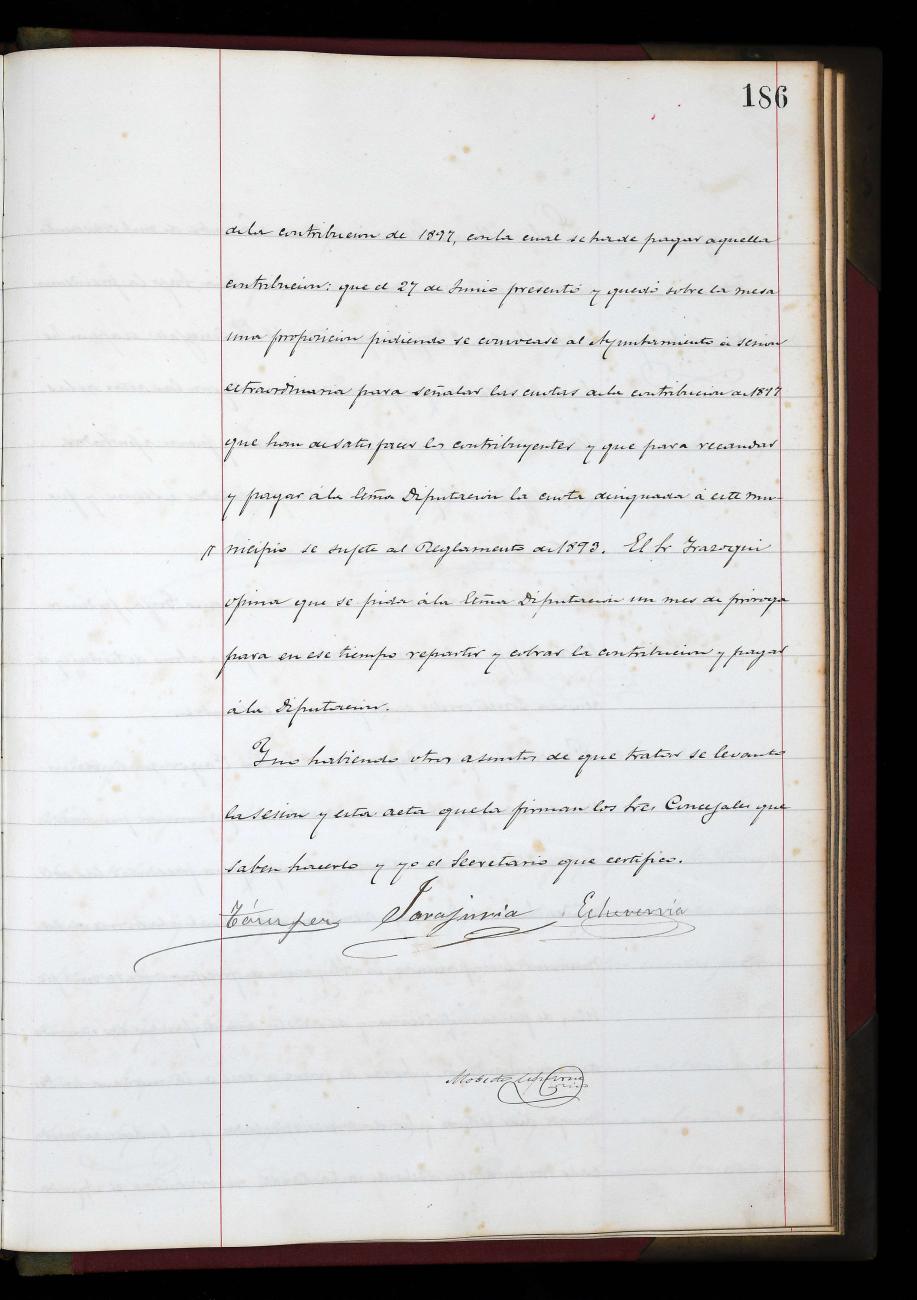 186
de la contribucion de 1897, con la cual se ha de pagar aquella
contribucion: que el 27 de Junio presentó y quedó sobre la mesa
una proposicion pidiendo se convocase al Ayuntamiento á sesion
estraordinaria para señalar las cuotas de la contribucion de 1897
que han de satisfacer los contribuyentes y que para recaudar
y pagar á la Eſma Diputacion la cuota designada á este mu-
nicipio se sujete al Reglamento de 1893. El Sr Irazoqui
opina que se pida á la Eſma Diputacion un mes de próroga
para en ese tiempo repartir y cobrar la contribucion y pagar
á la Diputacion.
Y no habiendo otros asuntos de que tratar se levanto
la sesion y esta acta que la firman los Sres Concejales que
saben hacerlo y yo el Secretario que certifico.
Echeverria